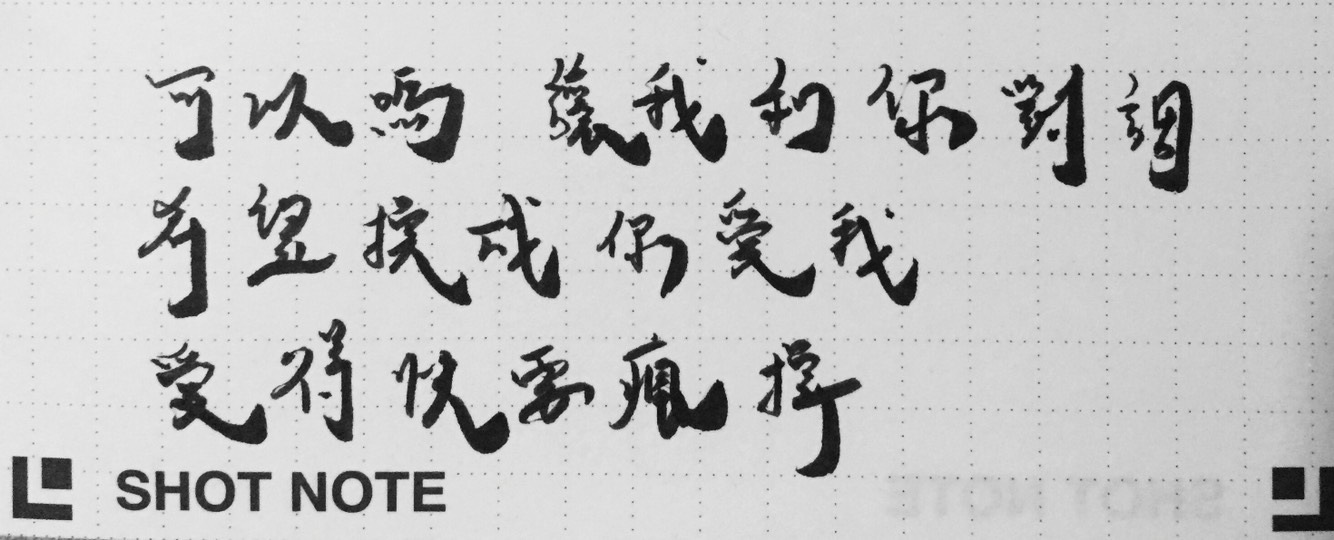 可以嗎 讓我和你對調
希望換成你愛我
愛得快要瘋掉
SHOT NOTE